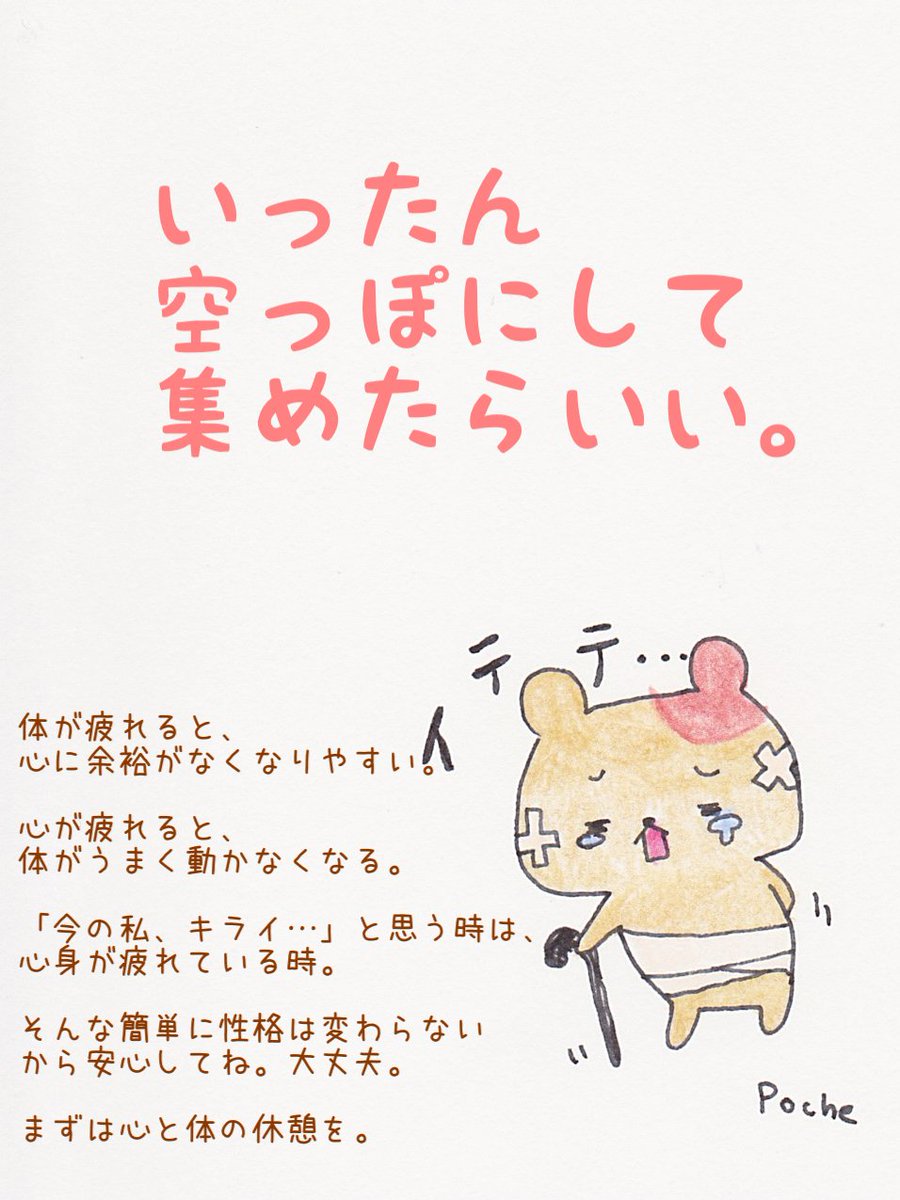 いったん
空っぽにして
集めたらいい。
イテテ…
体が疲れると、
心に余裕がなくなりやすい。
心が疲れると、
体がうまく動かなくなる。
「今の私、キライ…」と思う時は、
心身が疲れている時。
そんな簡単に性格は変わらない
から安心してね。大丈夫。
まずは心と体の休憩を。
Poche